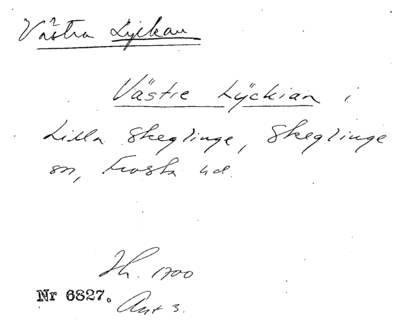 Västra Lyckan
Västre Lyckian i
Lilla Skeglinge, Skeglinge
sn, Frosta hd.
Jh. 1700
Nr 6827. Ant 3.